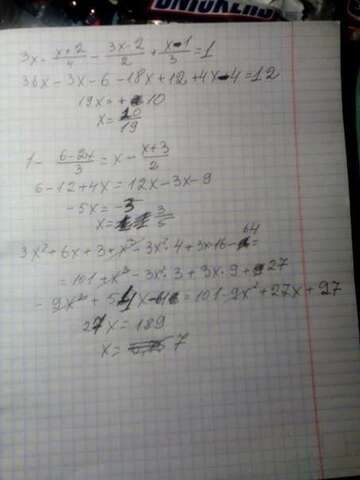 SNICKERS
3x - \frac{x+2}{4} - \frac{3x-2}{2} + \frac{x-1}{3} = 1
36x - 3x - 6 - 18x + 12 + 4x - 4 = 12
19x = + 10
x = \frac{10}{19}
1 - \frac{6-2x}{3} = x - \frac{x+3}{2}
6 - 12 + 4x = 12x - 3x - 9
-5x = -3
x = \frac{3}{5}
3x² + 6x + 3 + x³ - 3x²·4 + 3x·16 - 64 =
= 101 + x³ - 3x²·3 + 3x·9 + 27
- 9x² + 54x = 101 - 9x² + 27x + 27
27x = 189
x = 7